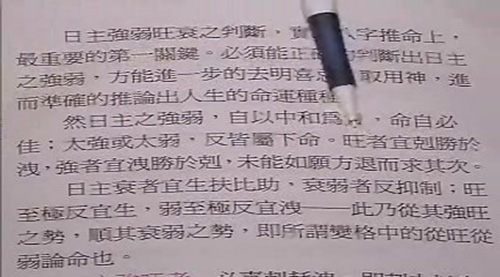 日主強弱旺衰之判斷，實八字推命上，
最重要的第一關鍵。必須能正確的判斷出日主
之強弱，方能進一步的去明喜忌取用神，進
而準確的推論出人生的命運種種
然日主之強弱，自以中和為，命自必
佳；太強或太弱，反皆屬下命。旺者宜剋勝於
洩，強者宜洩勝於剋，未能如願方退而求其次。
日主衰者宜生扶比助，衰弱者反抑制；旺
至極反宜生，弱至極反宜洩——此乃從其強旺
之勢，順其衰弱之勢，即所謂變格中的從旺從
弱論命也。